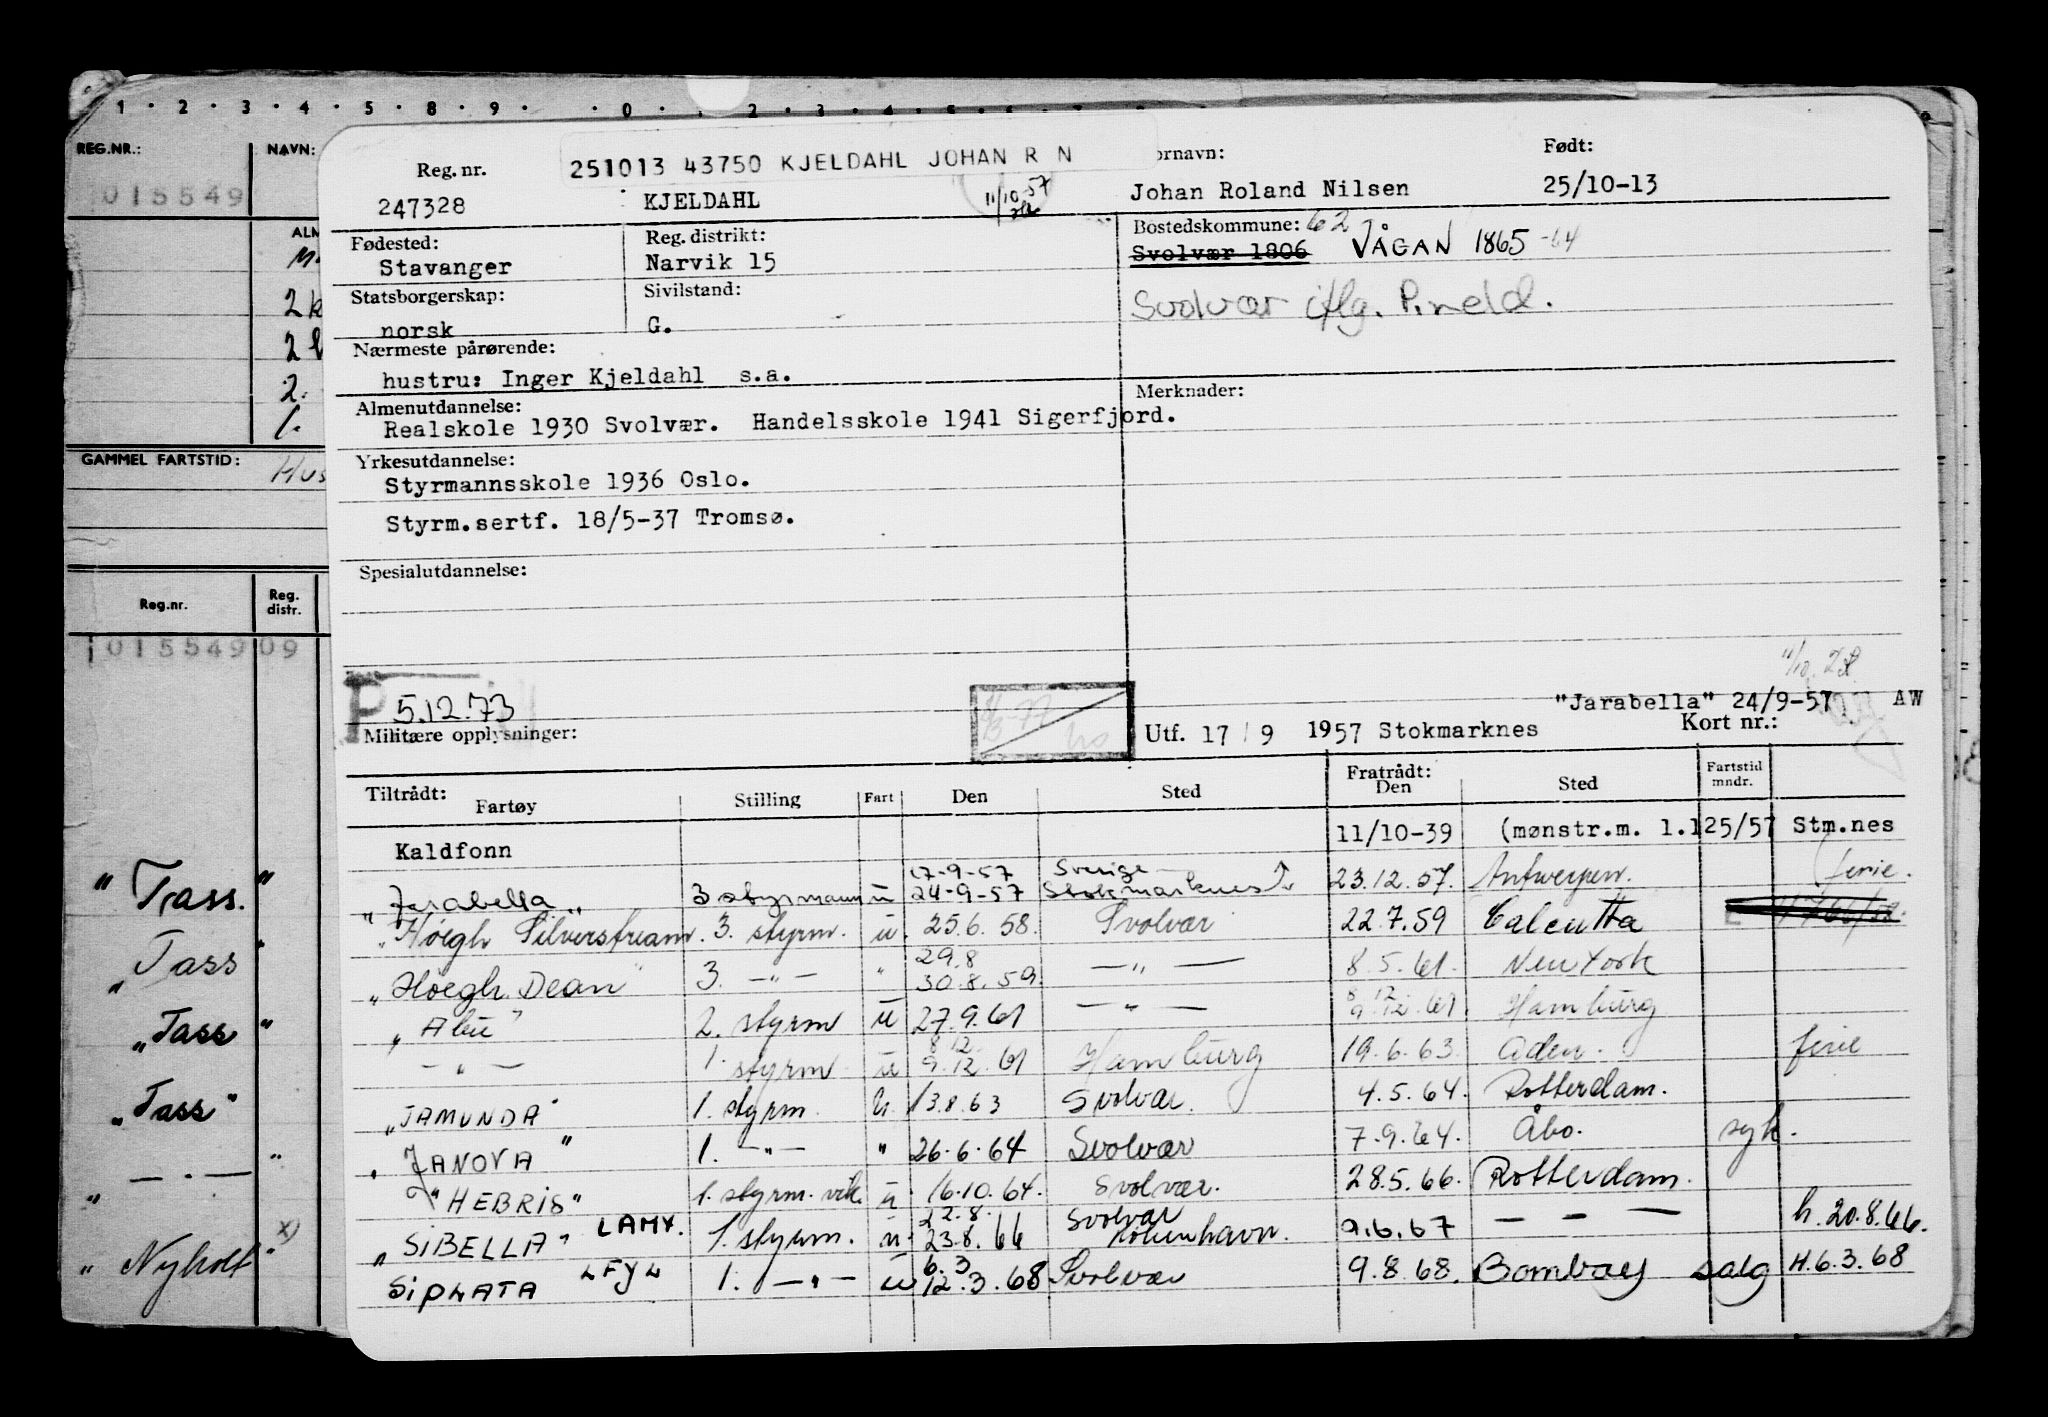 1 · 2 · 3 · 4 · 5 · 8 · 9 · · 0 · · 2 · 3 · 4 · 5 · 6 · 7
REG.NR.: NAVN:
015549
ALM
2k
2
2.
1.
GAMMEL FARTSTID: Hus
Reg.nr. Reg. distr.
015549 09
" Trass. "
" Tass "
" Tass "
" Tass "
" — · — "
" Nyholt " x)
Reg. nr. 251013 43750 KJELDAHL JOHAN R N ornavn: Født:
247328 KJELDAHL 11/10-57 Johan Roland Nilsen 25/10-13
Fødested: Reg. distrikt: Bostedskommune: 62
Stavanger Narvik 15 Svolvær 1806 VÅGAN 1865 -64
Statsborgerskap: Sivilstand: Svolvær iflg. P.meld.
norsk G.
Nærmeste pårørende:
hustru: Inger Kjeldahl s.a. Merknader:
Almenutdannelse:
Realskole 1930 Svolvær. Handelsskole 1941 Sigerfjord.
Yrkesutdannelse:
Styrmannsskole 1936 Oslo.
Styrm.sertf. 18/5-37 Tromsø.
Spesialutdannelse:
11/10
P 5.12.73 "Jarabella" 24/9-57 AW
Militære opplysninger: Utf. 17 / 9 1957 Stokmarknes Kort nr.:
Tiltrådt: Fartøy Stilling Fart Den Sted Fratrådt: Den Sted Fartstid mndr.
Kaldfonn 11/10-39 (mønstr.m. 1.125/57 Stm.nes
17-9-57 Sverige
"Jarabella" 3 styrmann u 24-9-57 Stokmarknes 23.12.57. Antwerpen. ferie.
"Höegh Silverstream. 3. styrm. u. 25.6.58. Svolvær 22.7.59 Calcutta
29.8
"Höegh Dean" 3. — " — " 30.8.59. — " — 8.5.61. New York
8 12
"Abu" 2. styrm u 27.9.61 — " — 9.12.61. Hamburg
8 12.
— " — 1. styrm u 9.12.61 Hamburg 19.6.63. Aden. ferie
"JAMUNDA" 1. styrm. u. 13.8.63 Svolvær. 4.5.64. Rotterdam.
"JANOVA" 1. — " — " 26.6.64 Svolvær 7.9.64. Åbo. syk.
"HEBRIS" 1. styrm. vik. u 16.10.64. Svolvær. 28.5.66. Rotterdam.
22.8. Svolvær
"SIBELLA" LAMX. 1. styrm. u. 23.8.66 København. 9.6.67 — — — h. 20.8.66.
6.3
SIPLATA LFYL 1. — " — u 12.3.68 Svolvær 9.8.68. Bombay salg H.6.3.68